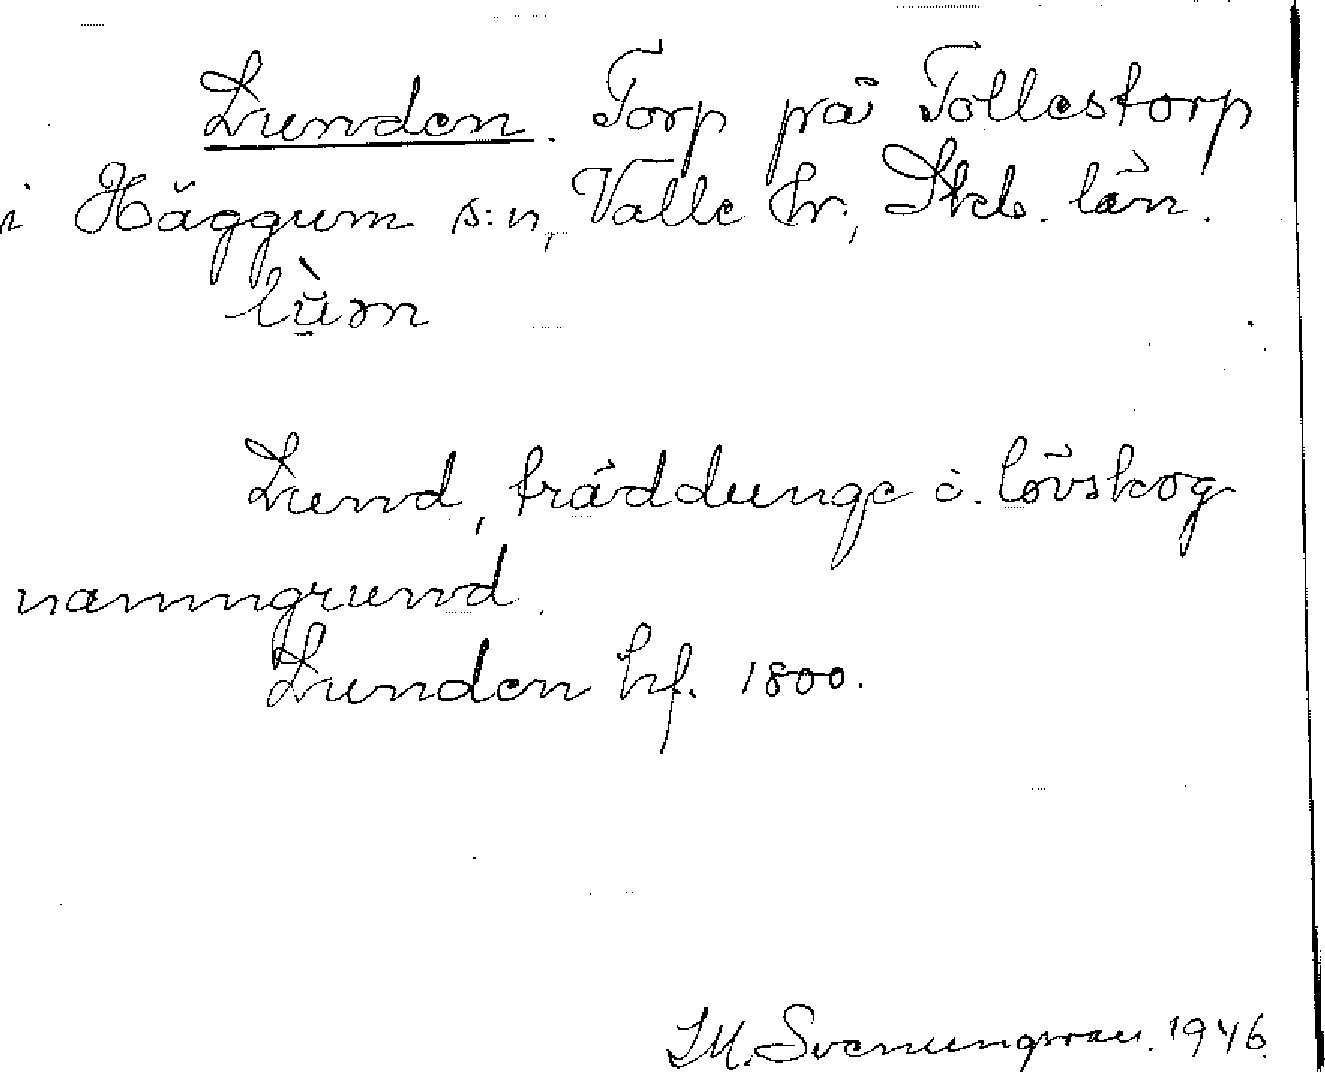 Lunden. Torp på Tollestorp
i Häggum s:n, Valle hr, Skb. län.
Lund, träddunge o. lövskog
namngrund.
Lunden hf. 1800.
S.M. Svenungsson. 1946.